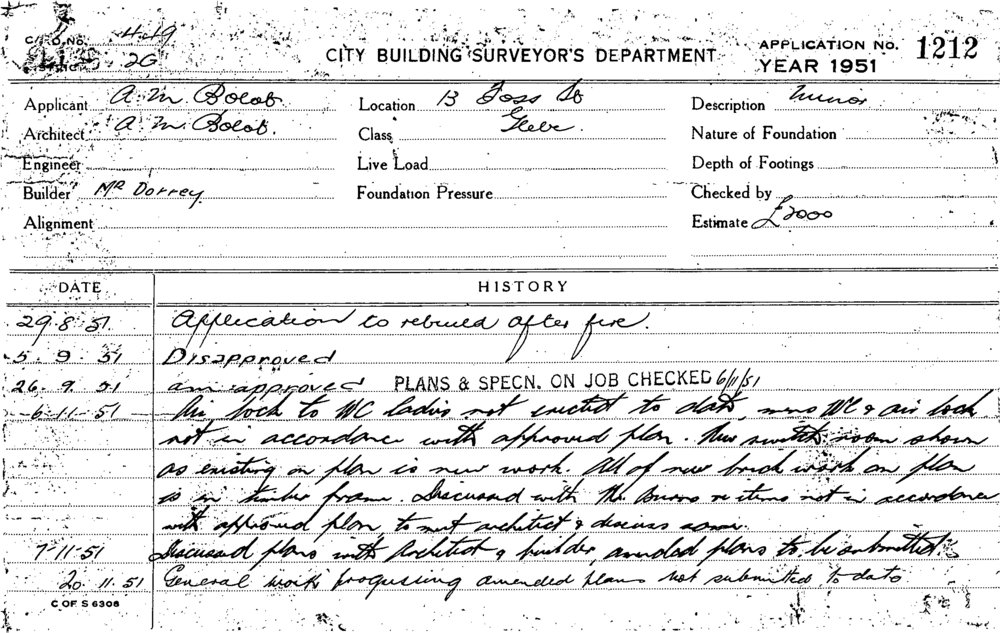 449
2G
CITY BUILDING SURVEYOR'S DEPARTMENT
APPLICATION No. 1212
YEAR 1951
Applicant A. M. Bolot Location 13 Foss St Description Minor
Architect A. M. Bolot. Class Glebe. Nature of Foundation
Engineer Live Load Depth of Footings
Builder Mr Dorrey Foundation Pressure Checked by
Alignment Estimate £2000
DATE HISTORY
29.8.51 Application to rebuild after fire.
5.9.51 Disapproved
26.9.51 approved PLANS & SPECN. ON JOB CHECKED 6/11/51
6-11-51 Air lock to WC ladies not erected to date, mens WC & air lock
not in accordance with approved plan. New switch room shown
as existing on plan is new work. All of new brick work on plan
is in timber frame. Discussed with Mr. Burns re items not in accordance
with approved plan, to meet architect & discuss same.
7-11-51 Discussed plans with Architect & builder, amended plans to be submitted
20.11.51 General work progressing amended plans not submitted to date
C OF S 6306